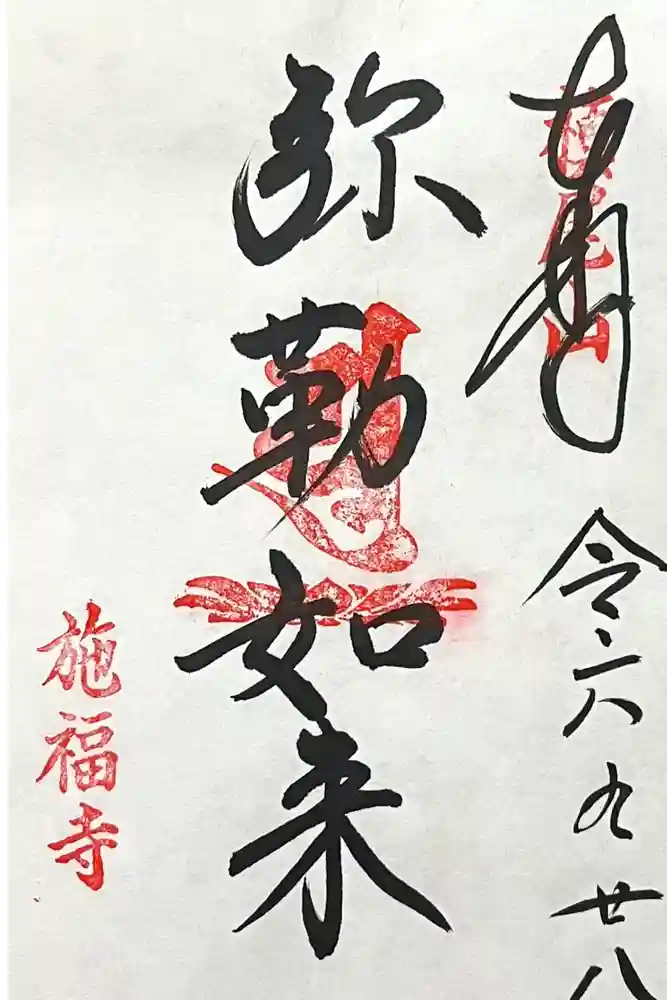 槇尾山
令六九廿八
弥勒如来
施福寺